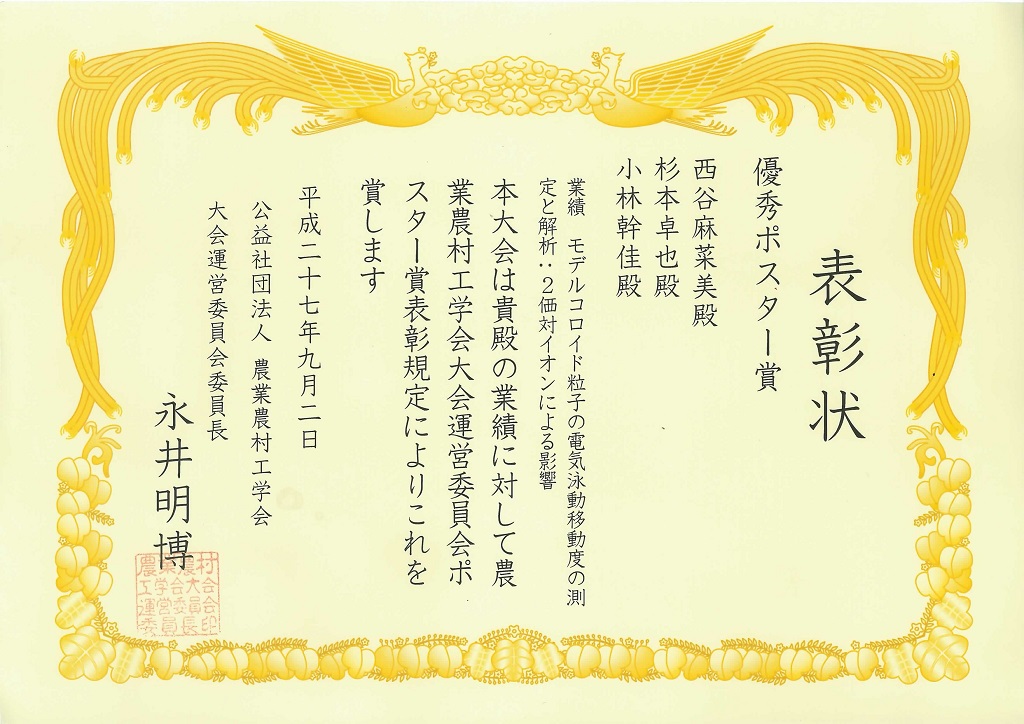 表彰状
優秀ポスター賞
西谷麻菜美殿
杉本卓也殿
小林幹佳殿
業績　モデルコロイド粒子の電気泳動移動度の測
定と解析：２価対イオンによる影響
本大会は貴殿の業績に対して農
業農村工学会大会運営委員会ポ
スター賞表彰規定によりこれを
賞します
平成二十七年九月二日
公益社団法人 農業農村工学会
大会運営委員会委員長
永井明博
農業農村
工学会大会
運営委員会
委員長印